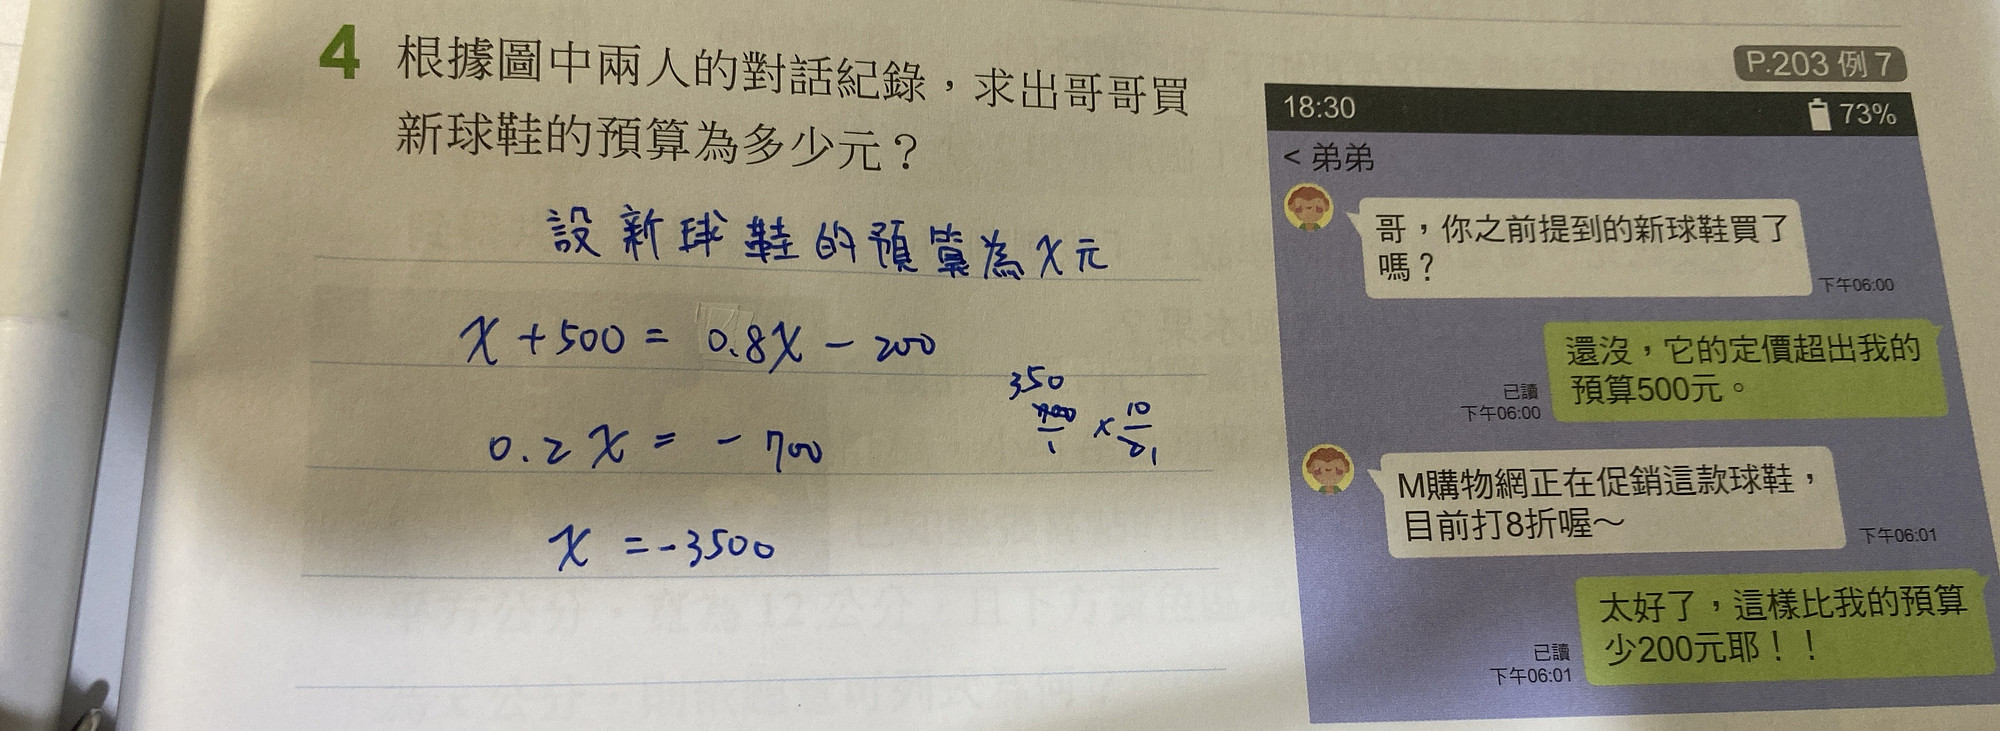 4 根據圖中兩人的對話紀錄，求出哥哥買
新球鞋的預算為多少元？
設新球鞋的預算為x元
x+500= 0.8x-200
0.2x=-700
x=-3500
350
700/1 x 10/2 1
P.203 例7
18:30 73%
< 弟弟
哥，你之前提到的新球鞋買了
嗎？
下午06:00
還沒，它的定價超出我的
預算500元。
已讀
下午06:00
M購物網正在促銷這款球鞋，
目前打8折喔～
下午06:01
太好了，這樣比我的預算
少200元耶！！
已讀
下午06:01